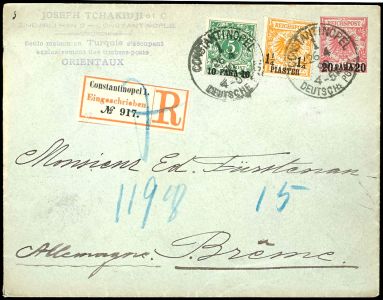 5
JOSEPH TCHAKIDJI et C
CONSTANTINOPLE
Seule maison en Turquie s'occupant
exclusivement des timbres-poste
ORIENTAUX
REICHSPOST
5
10 PARA 10
1¼ 1¼
PIASTER
REICHSPOST
20 PARA 20
CONSTANTINOPEL
1
DEUTSCHE
CONSTANTINOPEL
1
4-5
DEUTSCHE
Constantinopel 1.
Eingeschrieben.
№ 917.
R
Monsieur Ed. Fürstenau
1198 15
Allemagne. Brême.